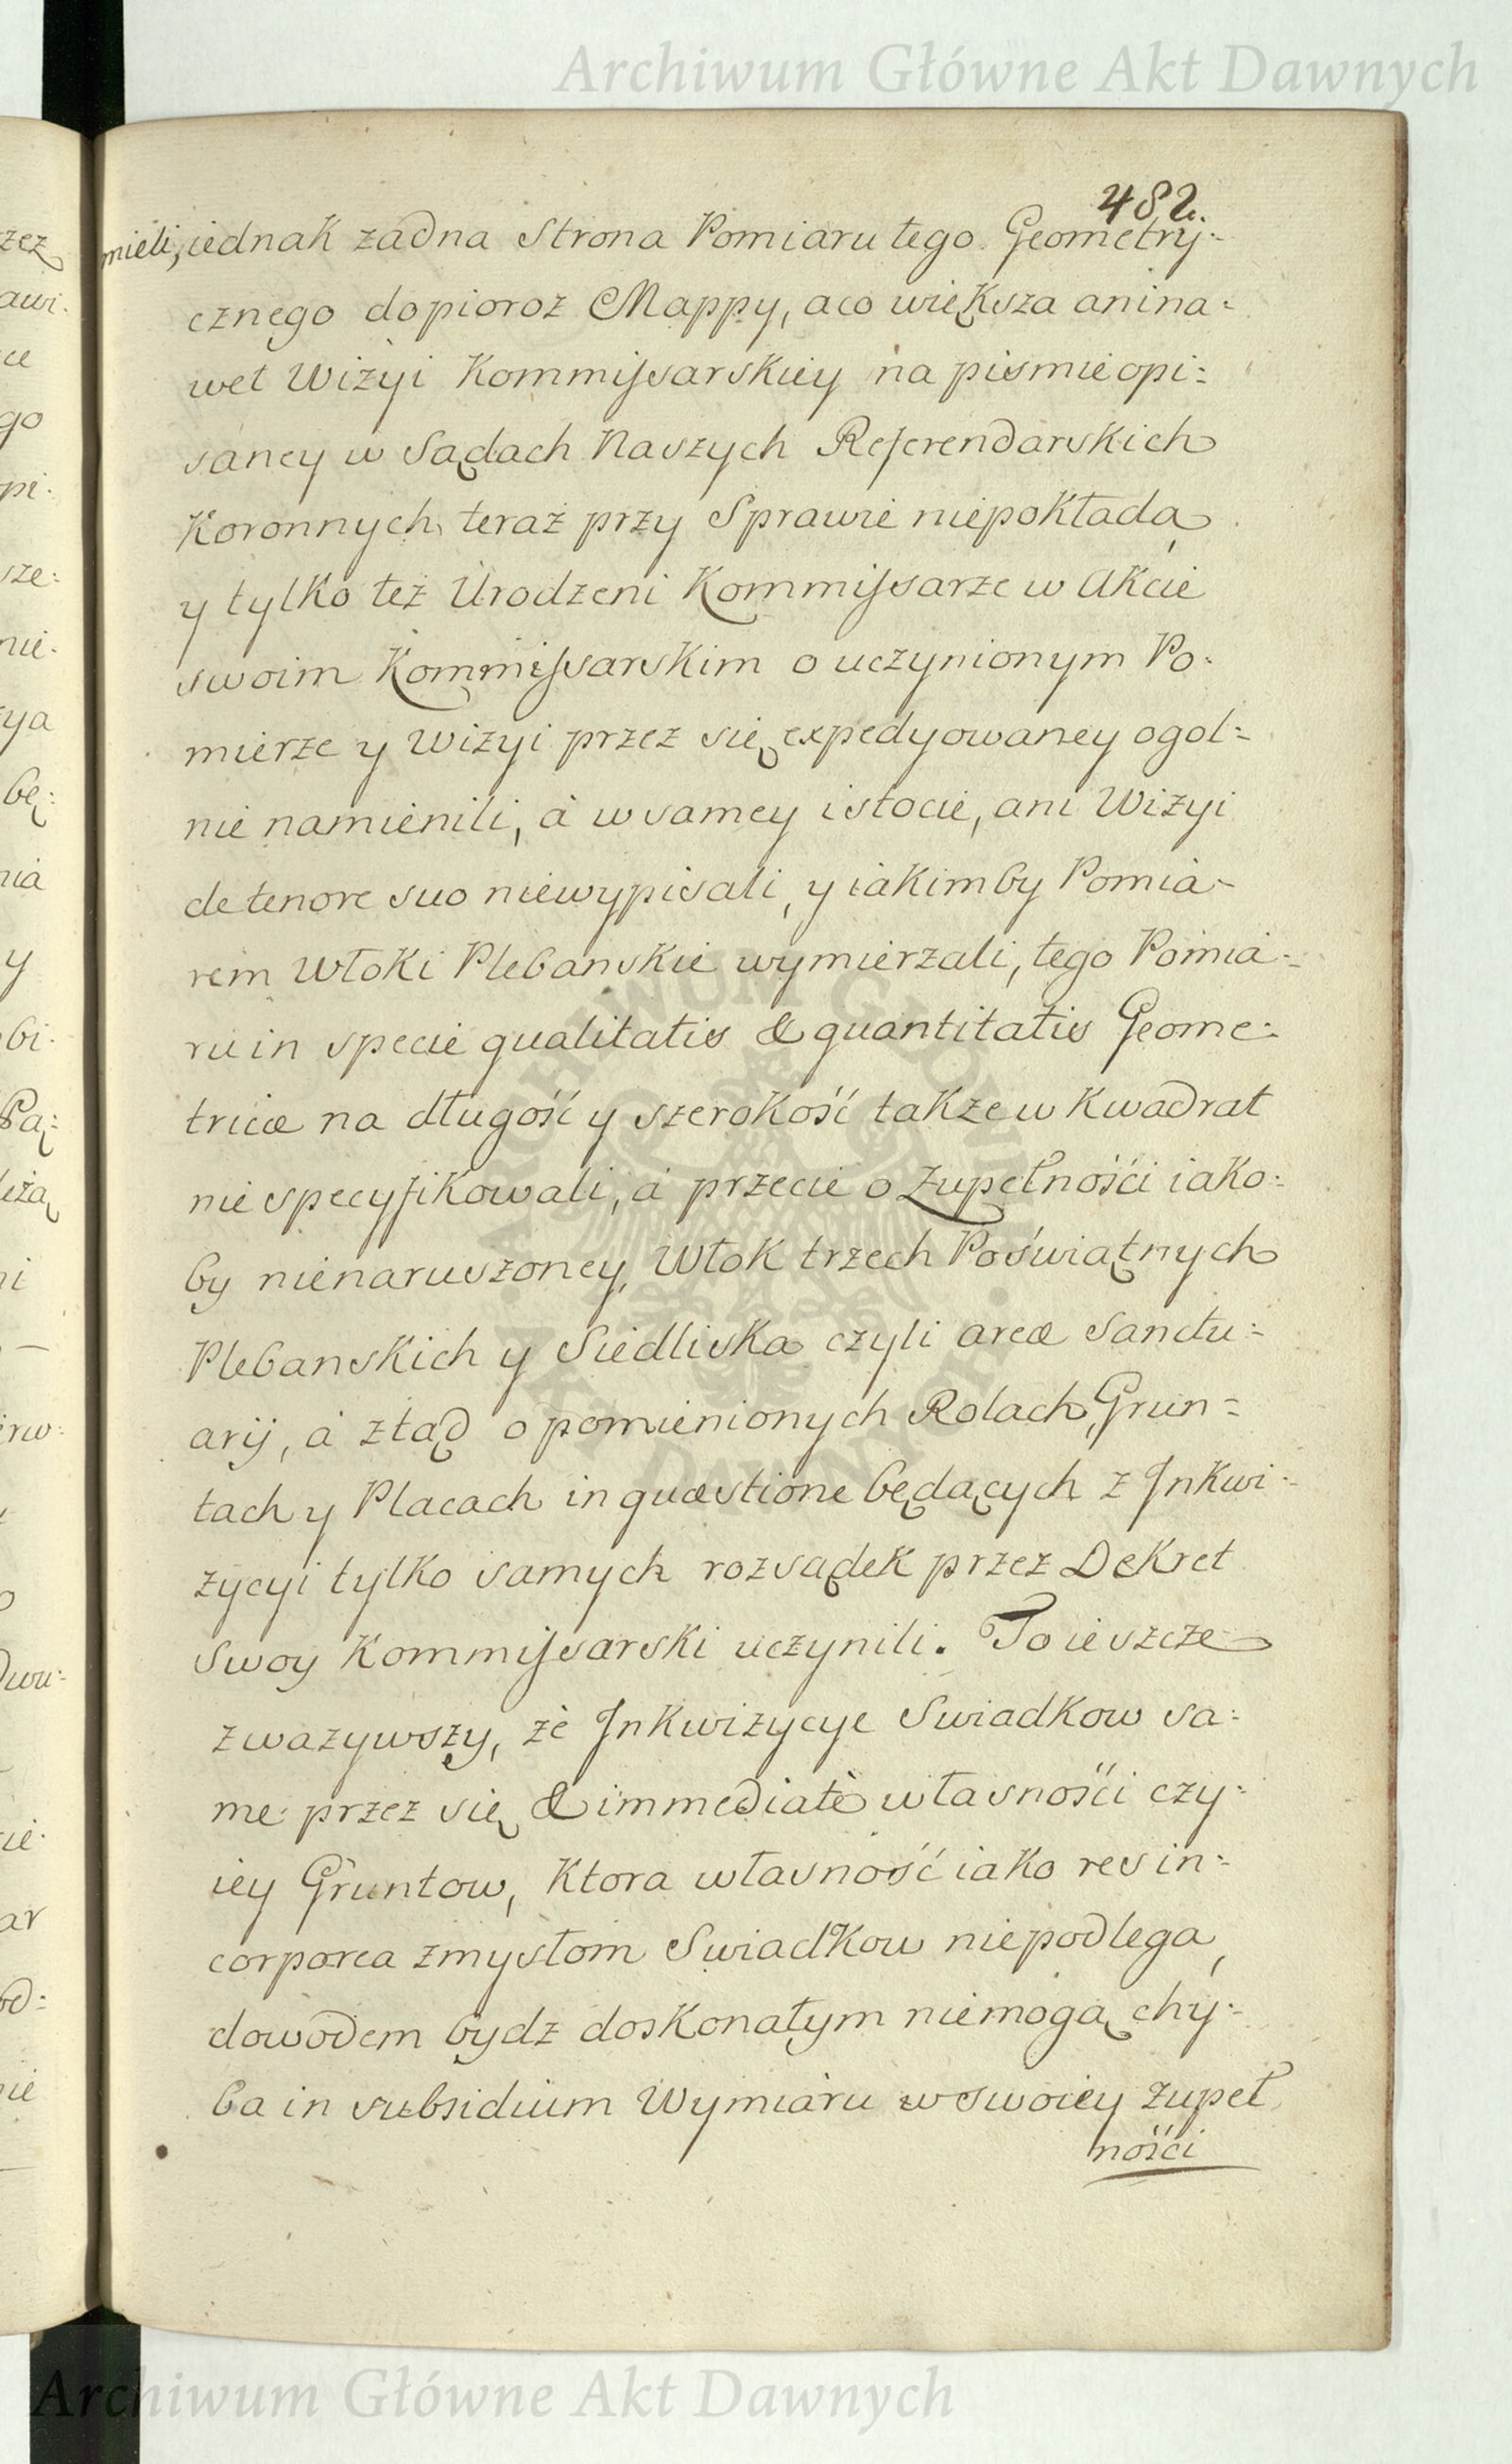 Archiwum Główne Akt Dawnych
482.
mieli, iednak zadna Strona Pomiaru tego Geometry-
cznego dopioroz Mappy, aco większa anina-
wet Wizyi Kommissarskiey na pismie opi:
saney w Sądach Naszych Referendarskich
Koronnych, teraz przy Sprawie niepokłada,
y tylko też Urodzeni Kommissarze w Akcie
swoim Kommissarskim o uczynionym Po-
mierze y Wizyi przez się expedyowaney ogol-
nie namienili, à w samey istocie, ani Wizyi
de tenore suo niewypisali, y iakimby Pomia-
rem Włoki Plebanskie wymierzali, tego Pomia-
ru in specie qualitatis & quantitatis Geome-
tricæ na długość y szerokość takze w Kwadrat
nie specyfikowali, à przecie o zupełności iako-
by nienaruszoney, Włok trzech Poświątnych
Plebanskich y Siedliska czyli areæ Sanctu-
arij, à ztąd o pomienionych Rolach, Grun-
tach y Placach in quæstione będących z Inkwi-
zycyi tylko samych rozsądek przez Dekret
Swoy Kommissarski uczynili. To ieszcze
zwazywszy, że Inkwizycye Swiadkow sa-
me przez się & immediatè własności czy-
iey Gruntow, Ktora własność iako res in-
corporea zmysłom Swiadkow niepodlega,
dowodem bydz doskonałym niemogą chy-
ba in subsidium Wymiaru w swoiey zupeł
ności
ARCHIWUM GŁÓWNE AKT DAWNYCH
Archiwum Główne Akt Dawnych